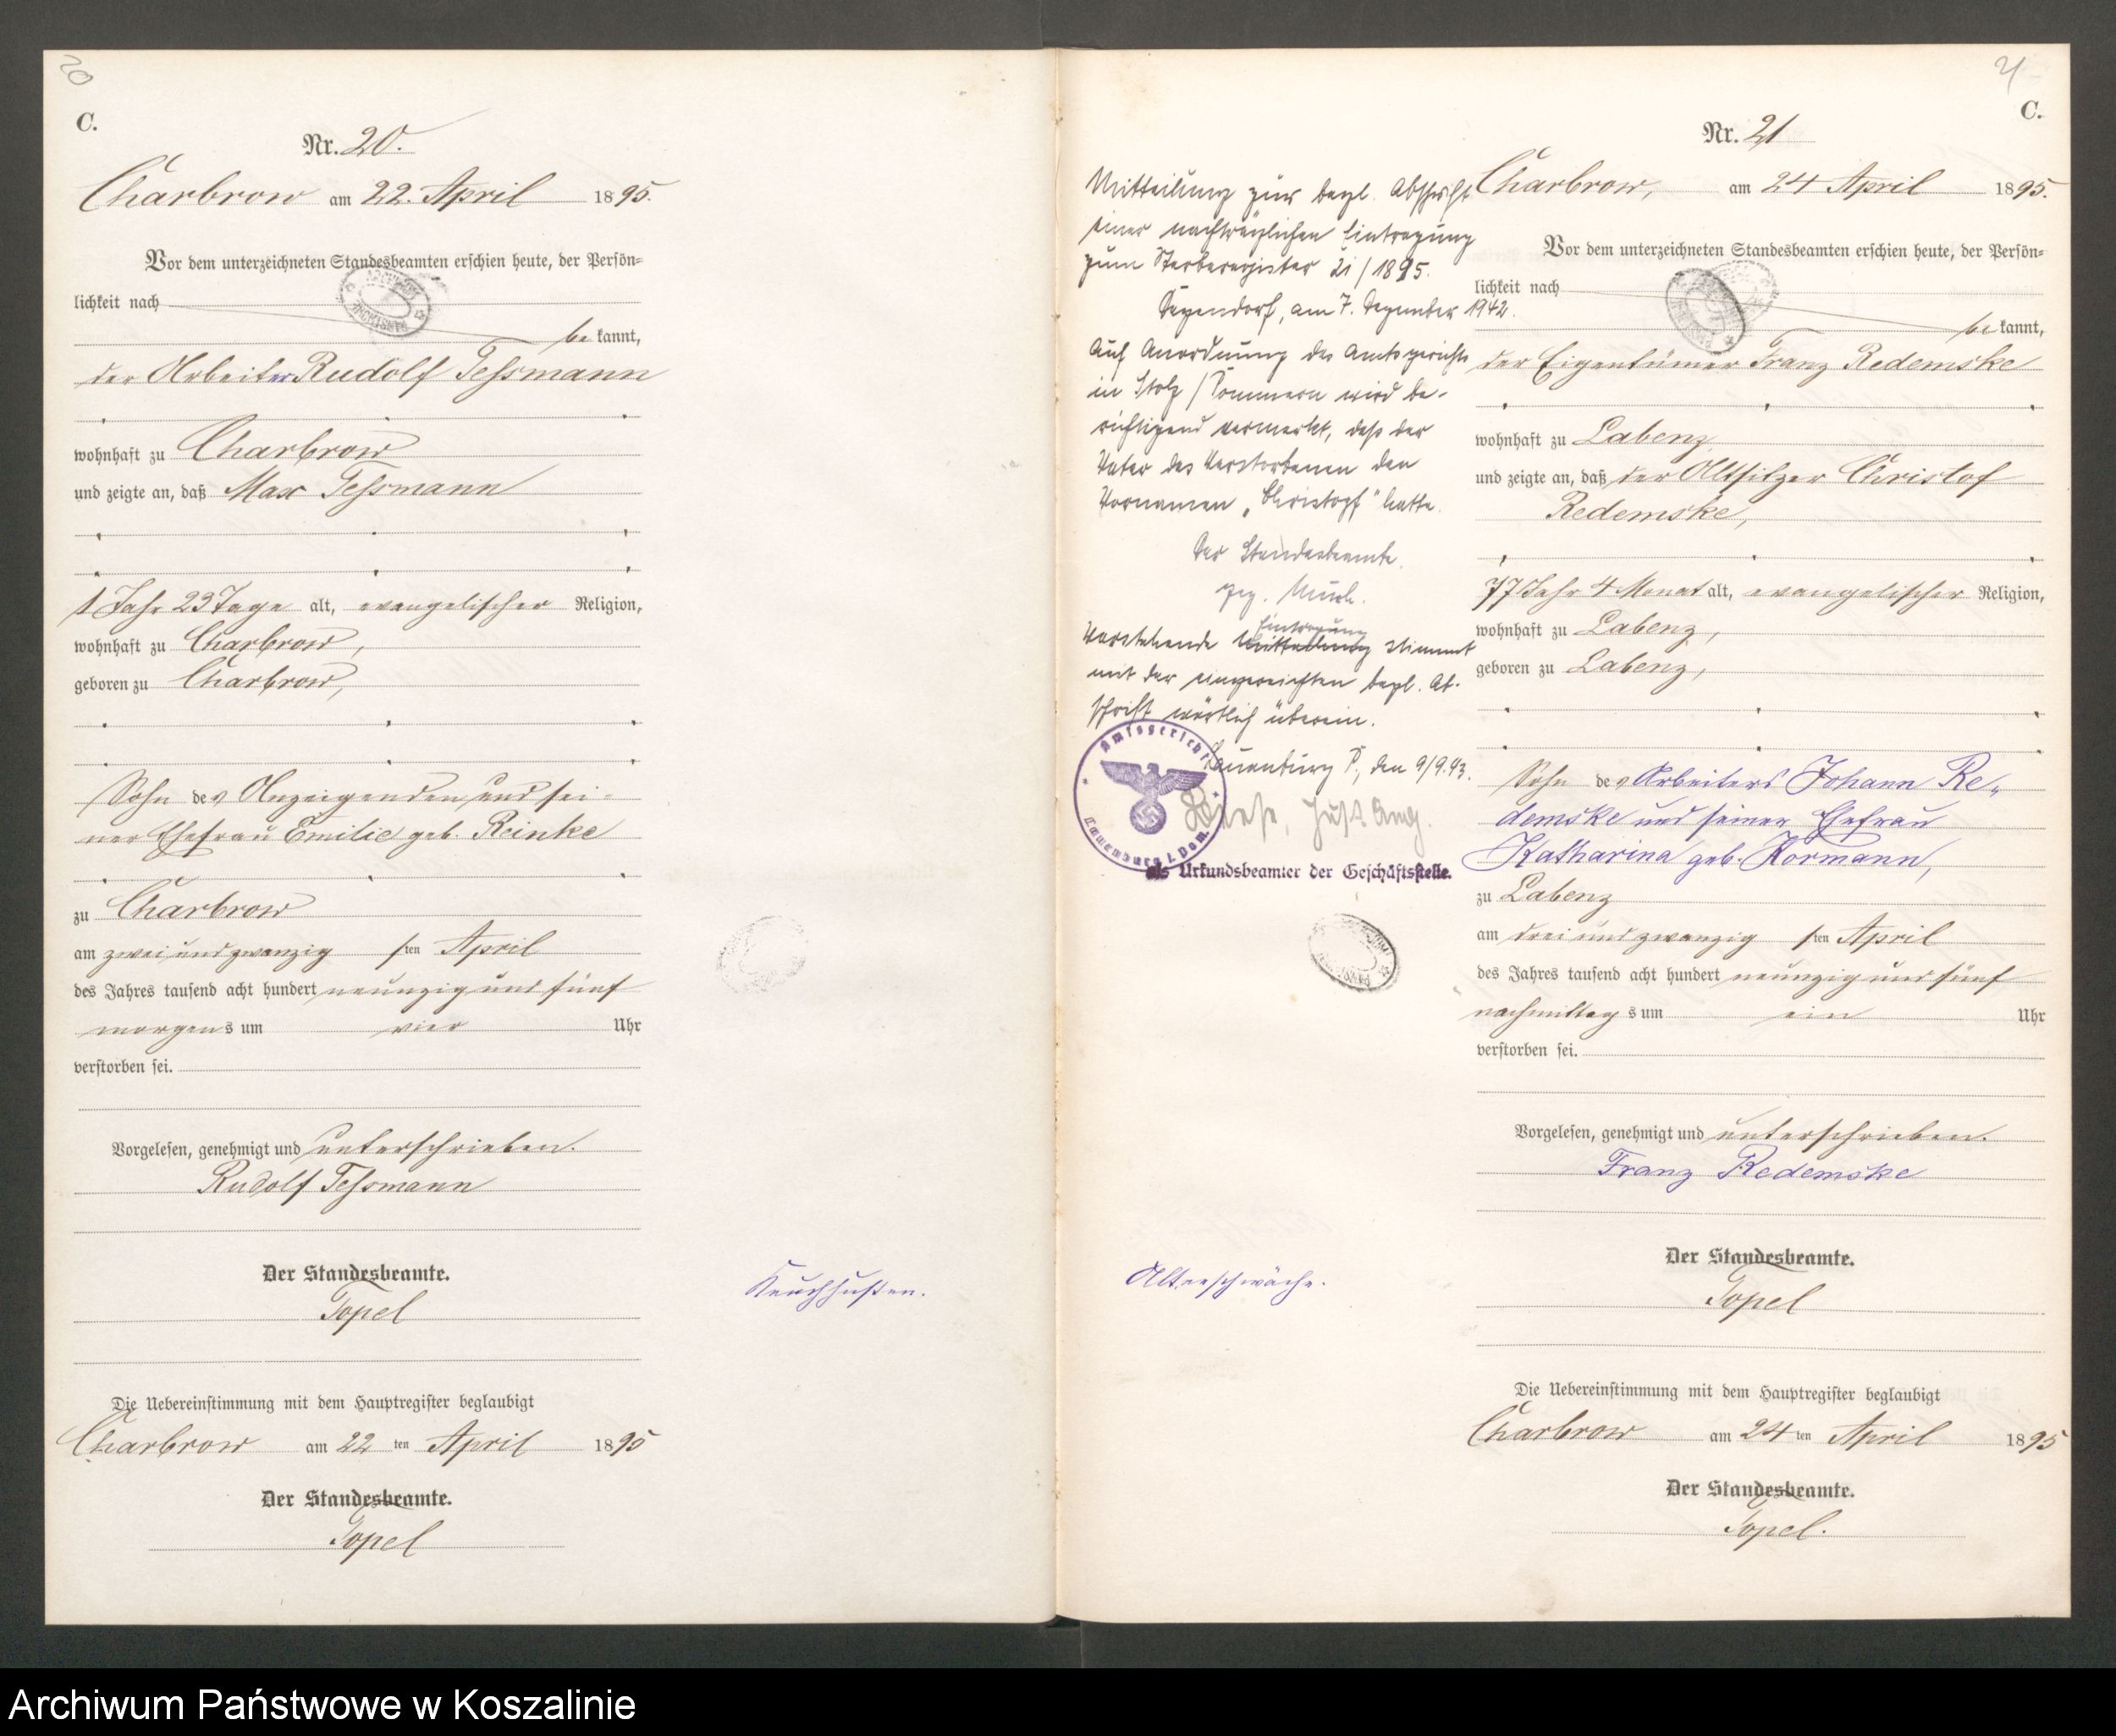 20
C.
Nr. 20.
Charbrow am 22. April 1895.
Vor dem unterzeichneten Standesbeamten erschien heute, der Persön-
lichkeit nach
be kannt,
der Arbeiter Rudolf Teßmann
wohnhaft zu Charbrow
und zeigte an, daß Max Teßmann
1 Jahr 23 Tage alt, evangelischer Religion,
wohnhaft zu Charbrow,
geboren zu Charbrow,
Sohn des Anzeigenden und sei-
ner Ehefrau Emilie geb. Reinke
zu Charbrow
am zwei und zwanzig sten April
des Jahres tausend acht hundert neunzig und fünf
morgens um vier Uhr
verstorben sei.
Vorgelesen, genehmigt und unterschrieben.
Rudolf Teßmann
Der Standesbeamte.
Topel
Keuchhusten.
Die Uebereinstimmung mit dem Hauptregister beglaubigt
Charbrow am 22 ten April 1895
Der Standesbeamte.
Topel
21
C.
Nr. 21
Charbrow, am 24 April 1895.
Vor dem unterzeichneten Standesbeamten erschien heute, der Persön-
lichkeit nach
be kannt,
der Eigentümer Franz Redemske
wohnhaft zu Labenz
und zeigte an, daß der Altsitzer Christof
Redemske,
77 Jahr 4 Monat alt, evangelischer Religion,
wohnhaft zu Labenz,
geboren zu Labenz,
Sohn des Arbeiters Johann Re-
demske und seiner Ehefrau
Katharina geb. Kormann,
zu Labenz
am drei und zwanzig sten April
des Jahres tausend acht hundert neunzig und fünf
nachmittags um ein Uhr
verstorben sei.
Vorgelesen, genehmigt und unterschrieben.
Franz Redemske
Der Standesbeamte.
Topel
Die Uebereinstimmung mit dem Hauptregister beglaubigt
Charbrow am 24 ten April 1895
Der Standesbeamte.
Topel.
Mitteilung zur begl. Abschrift
einer nachträglichen Eintragung
zum Sterberegister 21/1895.
am 7. Dezember 1942.
Auf Anordnung des Amtsgerichts
in Stolp / Pommern wird be-
richtigend vermerkt, daß der
Vater des Verstorbenen den
Vornamen „Christoph" hatte.
Der Standesbeamte.
gez.
Vorstehende Mitteilung Eintragung stimmt
mit der eingereichten begl. Ab-
schrift wörtlich überein.
Lauenburg P., den 9/9.43.
Just. Ang.
Amtsgericht
Lauenburg i. Pom.
als Urkundsbeamter der Geschäftsstelle.
Altersschwäche.
Archiwum Państwowe w Koszalinie